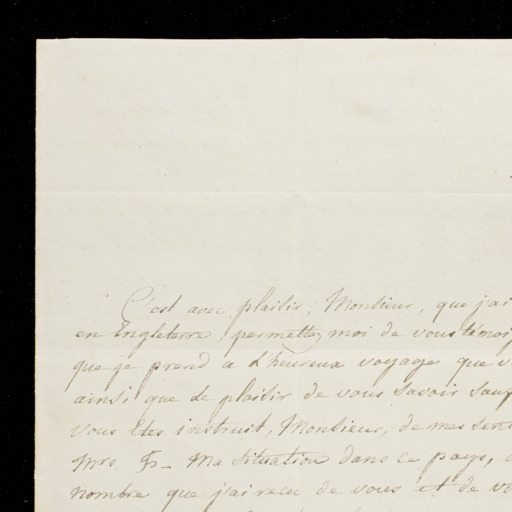 C'est avec plaisir, Monsieur, que j'ai
en Engleterre, permettez moi de vous témoig
que je prend a l'heureux voyage que v
ainsi que le plaisir de vous savoir sauf
vous êtes instruit, Monsieur, de mes
Mrs. Ma situation dans ce pays,
nombre que j'ai recu de vous et de vo